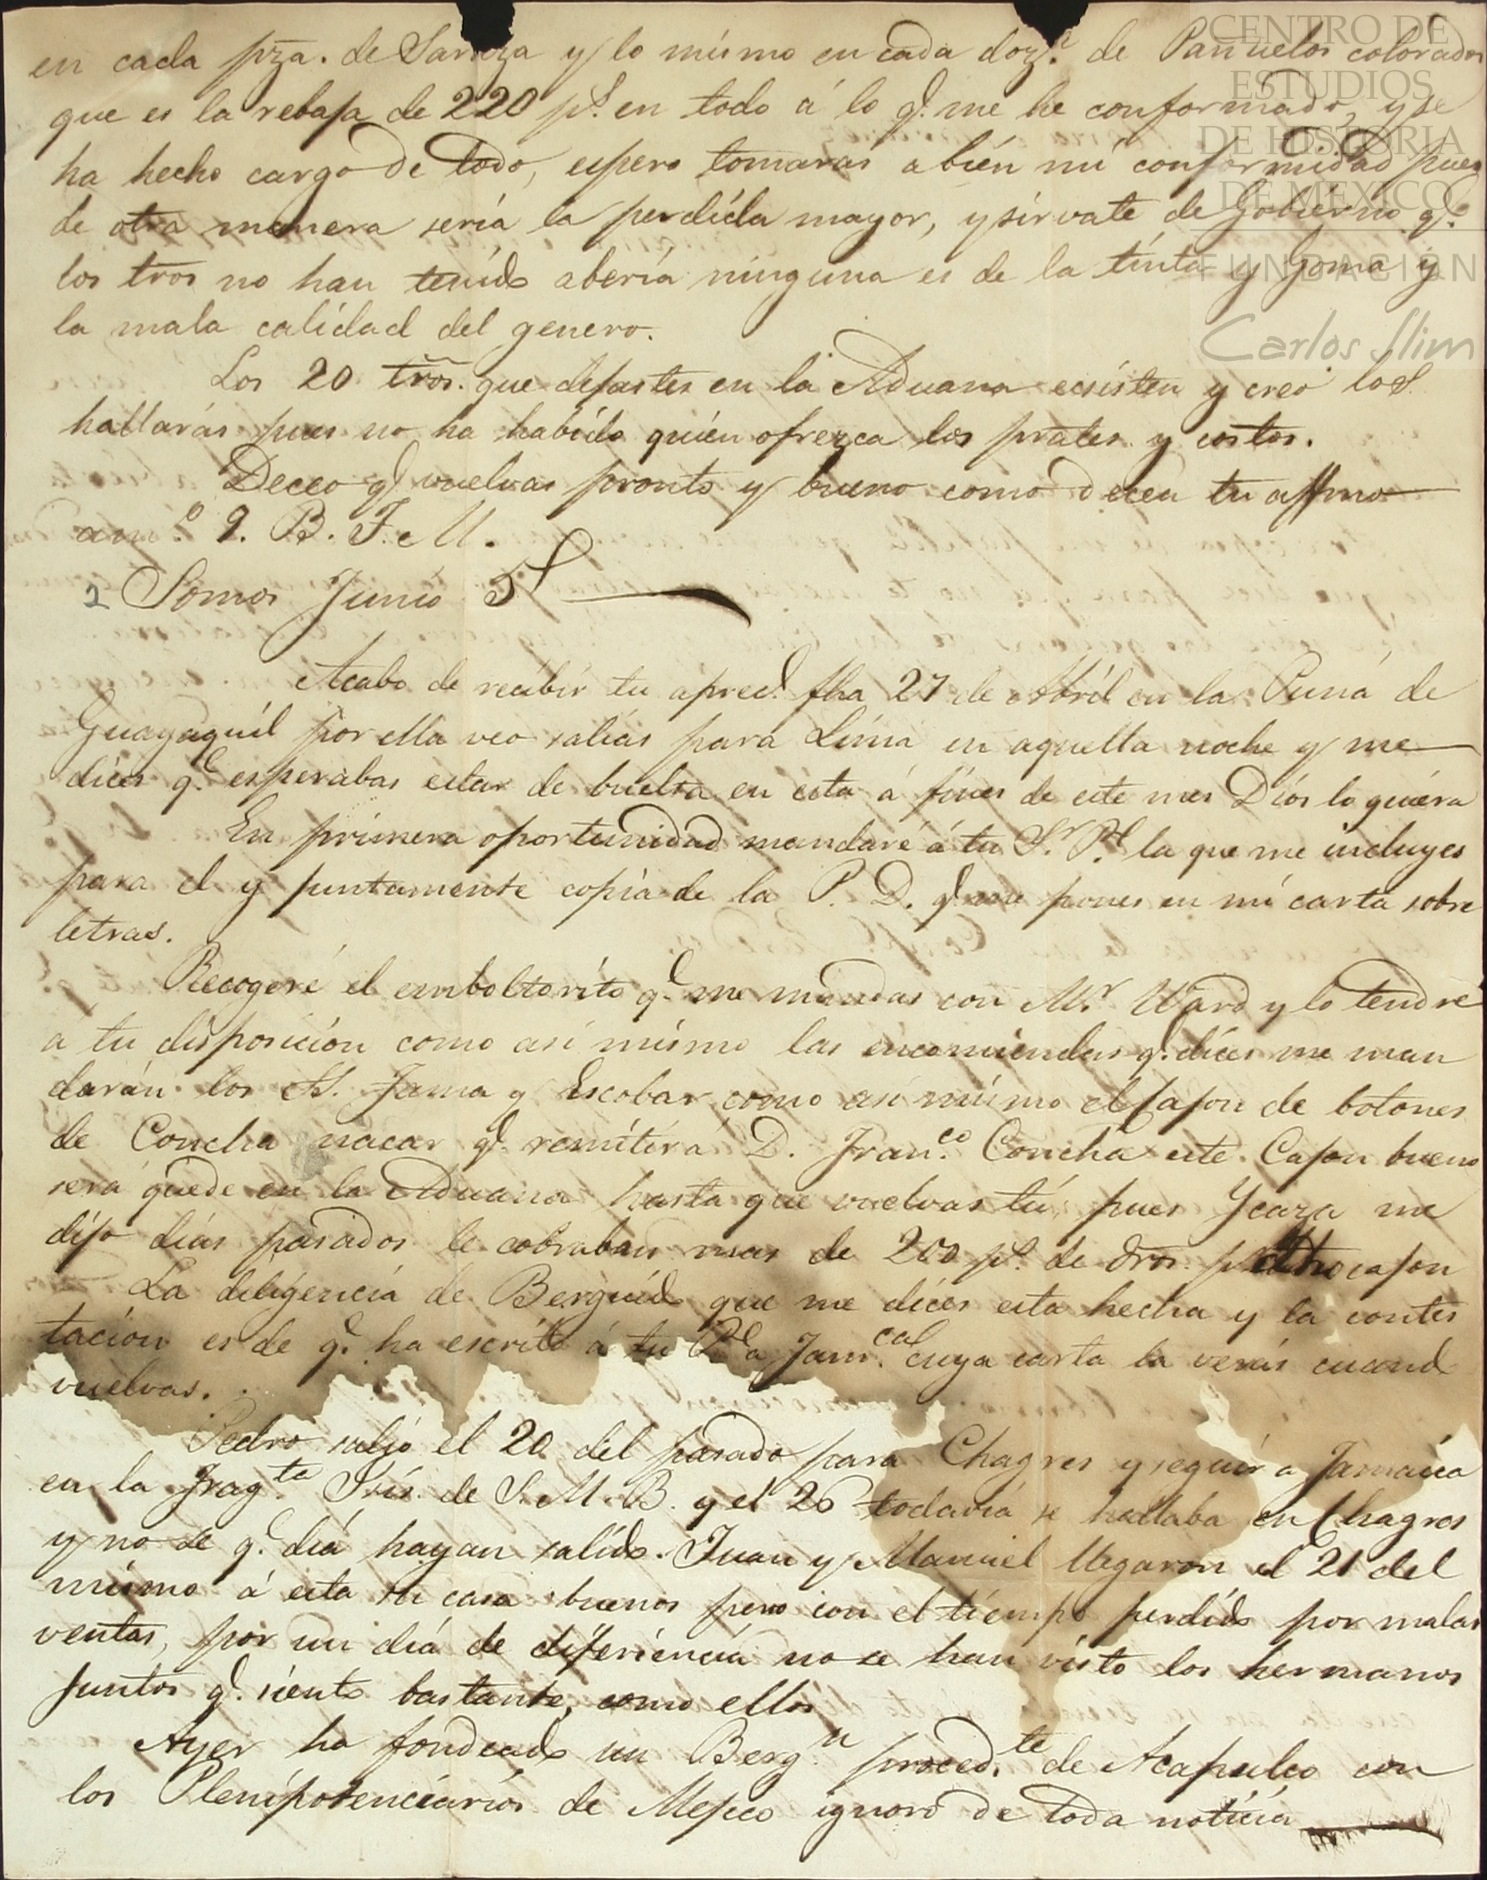 en cada pza. de Saraza y lo mismo en cada dozª. de Pañuelos colorados
que es la rebaja de 220 pˢ. en todo á lo q.ᵉ me he conformado, y se
ha hecho cargo de todo, espero tomarás a bien mi conformidad pues
de otra manera sería la perdida mayor, y sirvate de Gobierno q.ᵉ
los tros no han tenido abería ninguna es de la tinta y Goma y
la mala calidad del genero.
Los 20 trõs. que dejastes en la Aduana ecsisten y creo los
hallarás pues no ha habido quién ofrezca los prales. y costos.
Deceo q.ᵉ vuelvas pronto y bueno como decea tu affmo
am.º Q. B. T. M.
2 Somos Junio 5
Acabo de recibir tu apred. fha 27 de Abril en la Puná de
Guayaquil por ella veo salias para Lima en aquella noche y me
dices q.ᵉ esperabas estar de buelta en esta á fines de este mes Dios lo quiera
En primera oportunidad mandaré á tu S.ʳ P.ᵉ la que me incluyes
para el y juntamente copia de la P. D. q.ᵉ me pones en mi carta sobre
letras.
Recogeré el emboltorito q.ᵉ me mandas con M.ʳ Ward y lo tendré
a tu disposición como así mismo las encomiendas q.ᵉ dices me man
darán los SS. Jama y Escobar como así mismo el cajon de botones
de Concha nacar q.ᵉ remitirá D. Fran.ᶜᵒ Concha este Cajon bueno
será quede en la Aduana hasta que vuelvas tú, pues Ycaza me
dijo dias pasados le cobraban mas de 200 pˢ. de drõs. p. otro cajon
La diligencia de Berguido que me dices esta hecha y la contes
tación es de q.ᵉ ha escrito á tu P.ᵉ a Jam.ᶜᵃ cuya carta la verás cuando
vuelvas.
Pedro salió el 20 del pasado para Chagres y seguir a Jamaica
en la Frag.ᵗᵃ Isis de S. M. B. y el 26 todavia se hallaba en Chagres
y no se q.ᵉ dia hayan salido. Juan y Manuel llegaron el 21 del
mismo á esta su casa buenos pero con el tiempo perdido por malas
ventas, por un dia de diferiencia no se han visto los hermanos
juntos q.ᵉ siento bastante, como ellos
Ayer ha fondeado un Berg.ⁿ proced.ᵗᵉ de Acapulco con
los Plenipotenciarios de Mejico ignoro de toda noticia
CENTRO DE
ESTUDIOS
DE HISTORIA
DE MEXICO
FUNDACIÓN
Carlos Slim